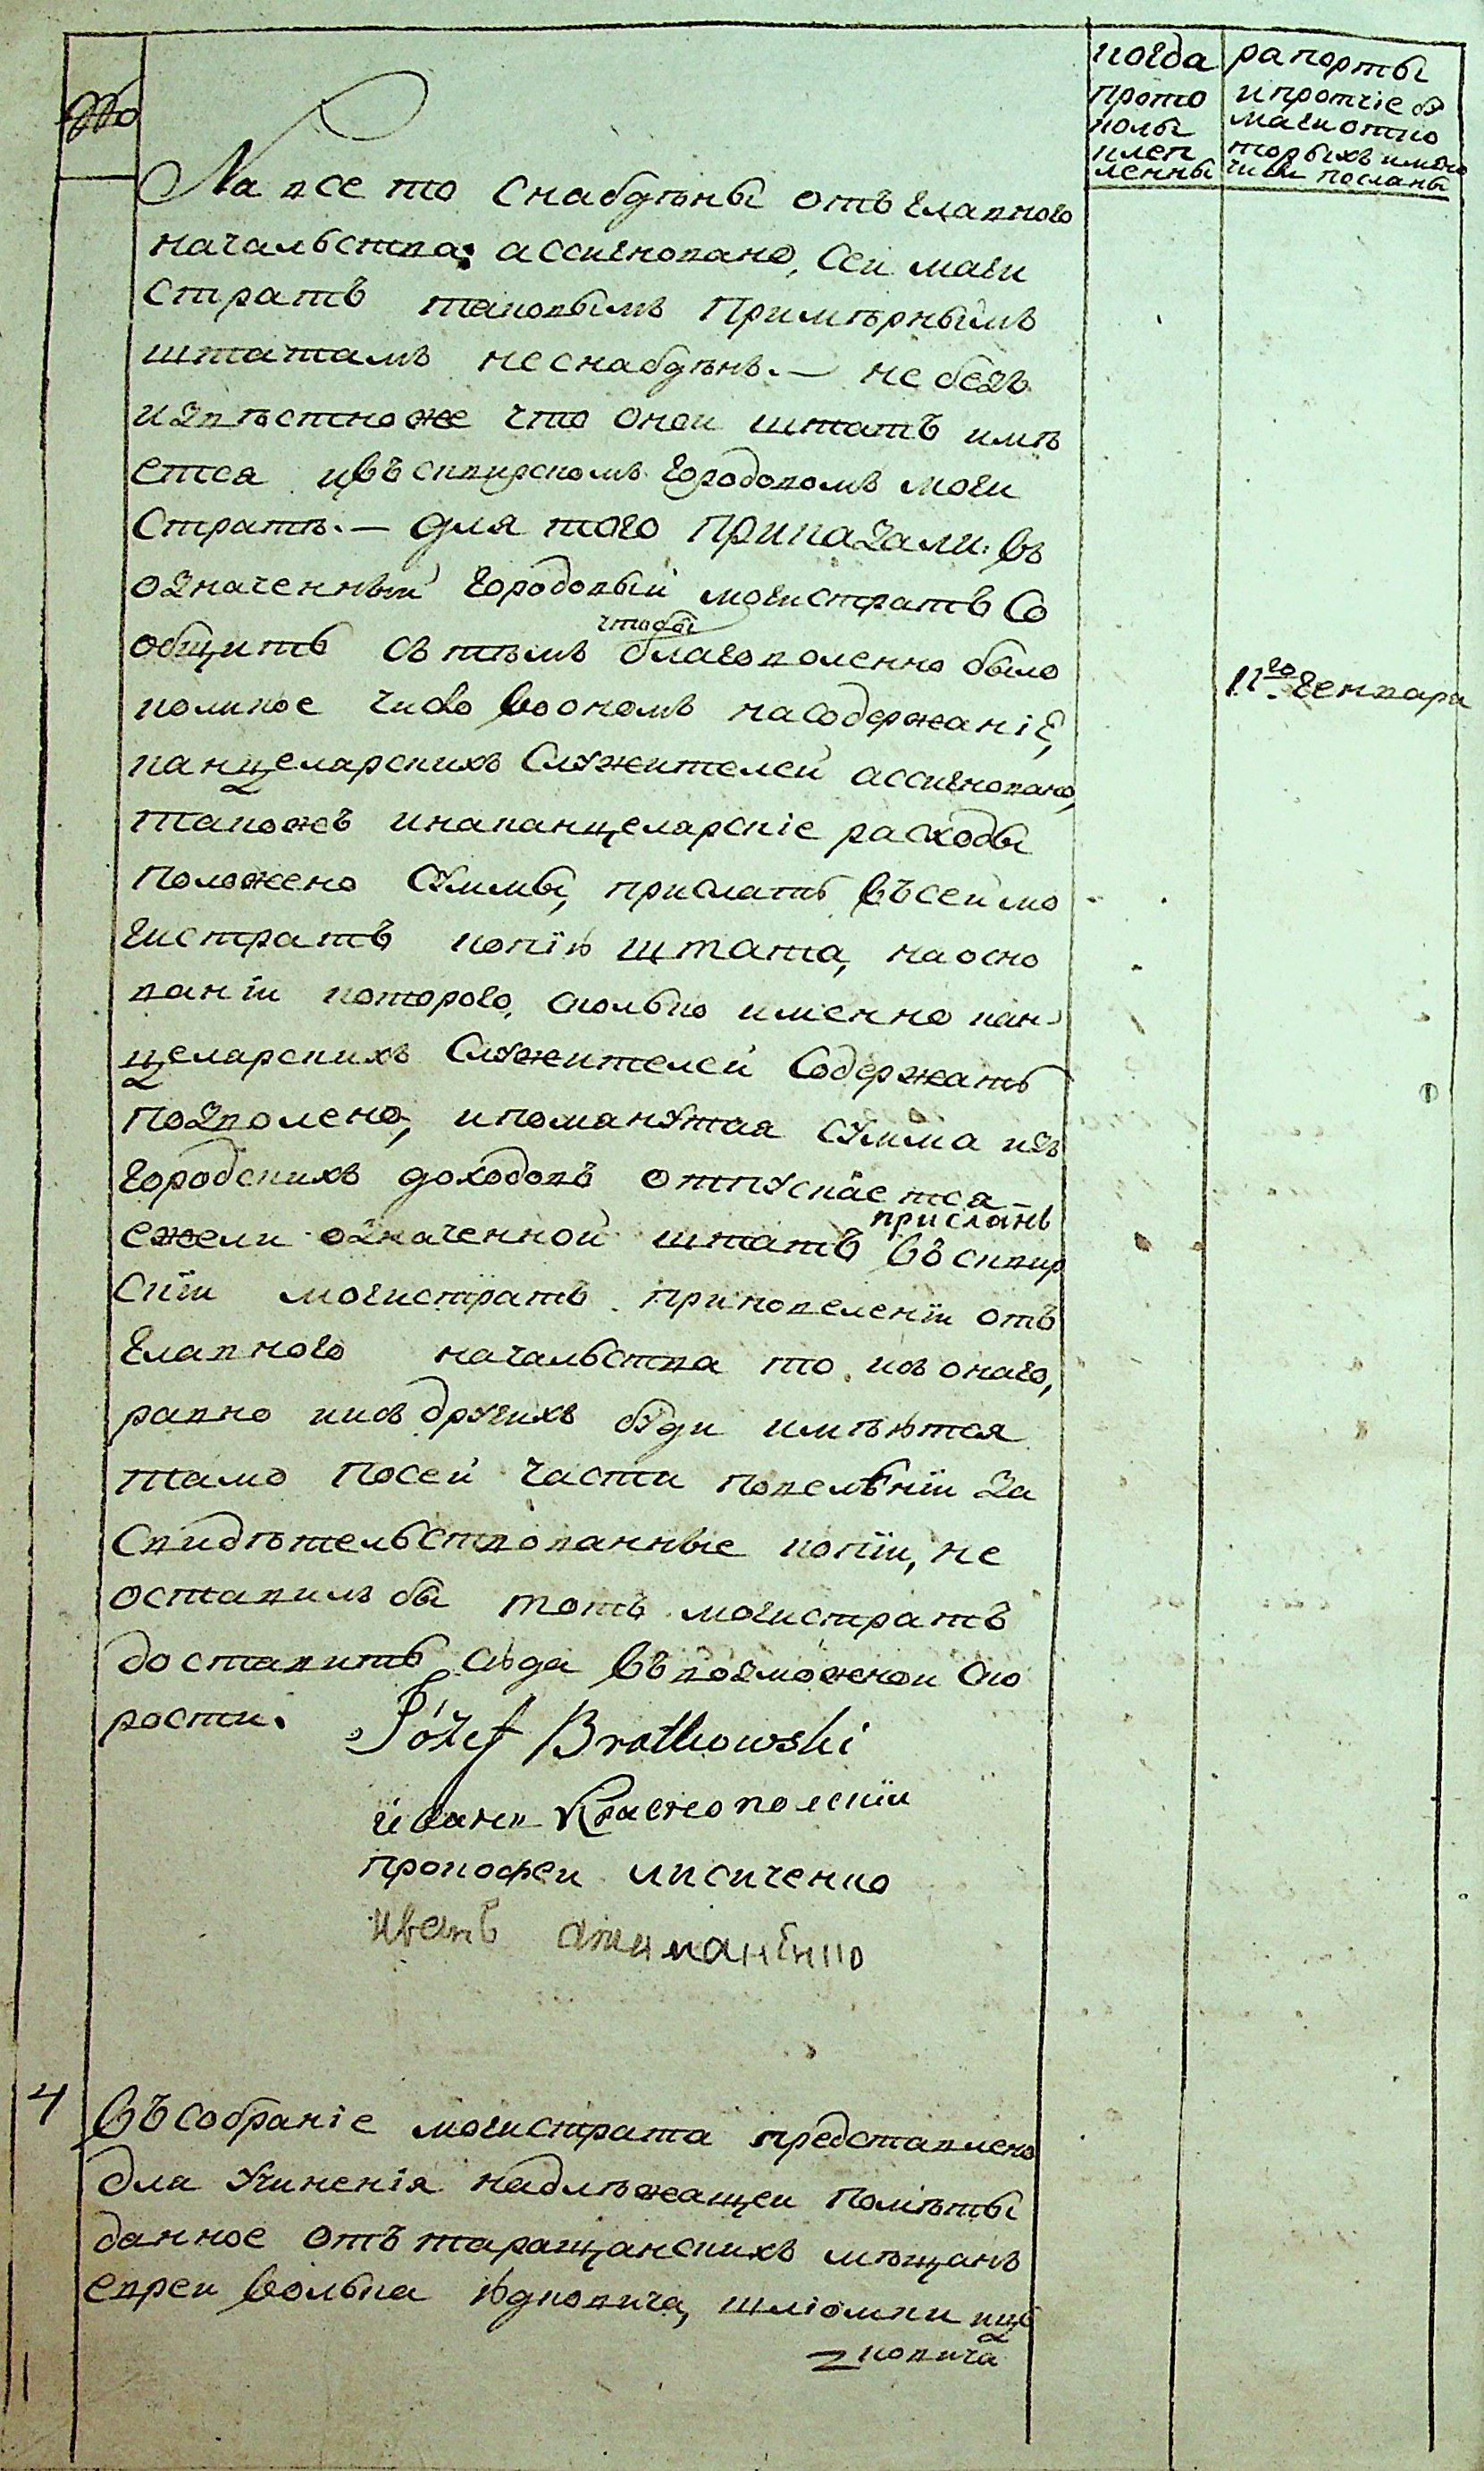 №
когда
прото
колы
илеп
ленны
рапорты
и протчіе бу
маги отко
торыхъ имѣно
числе посланы
На все то снабдѣны отъ главного
начальства ассигновано, сей маги
стратъ таковымъ примѣрнымъ
штатамъ неснабдѣнъ. — не безъ
извѣстноже что оной штатъ имѣ
ется ивъ сквирскомъ городовомъ маги
стратѣ. — для того приказали: въ
означенный городовый магистратъ со
общить съ тѣмъ чтобы благоволенно было
коликое число воономъ на содержаніе,
канцеларскихъ служителей ассигновано,
такожъ инаканцеларскіе расходы
положено суммы, прислать въсей ма
гистратъ копію штата, наосно
ваніи которого, сколько именно кан-
целарскихъ служителей содержать
позволено, ипомянутая сумма изъ
городскихъ доходовъ отпускается
ежели означенной штатъ присланъ въ сквир
скій магистратъ приповеленіи отъ
главного начальства то изъ онаго,
равно иизъ другихъ буди имѣются
тамо посей части повелѣніи за
свидѣтельствованные копіи, не
оставилъ бы тотъ магистратъ
доставить сюда въ возможной ско
рости.
11го генваря
Józef Bratkowski
иванъ Краснополскій
прокофей лисиченко
иванъ
4
Въ собраніе магистрата представлено
для учиненія надлѣжащей помѣты
данное отъ таращанскихъ мѣщанъ
евреи волька юдковича, шліомки иц
ковича